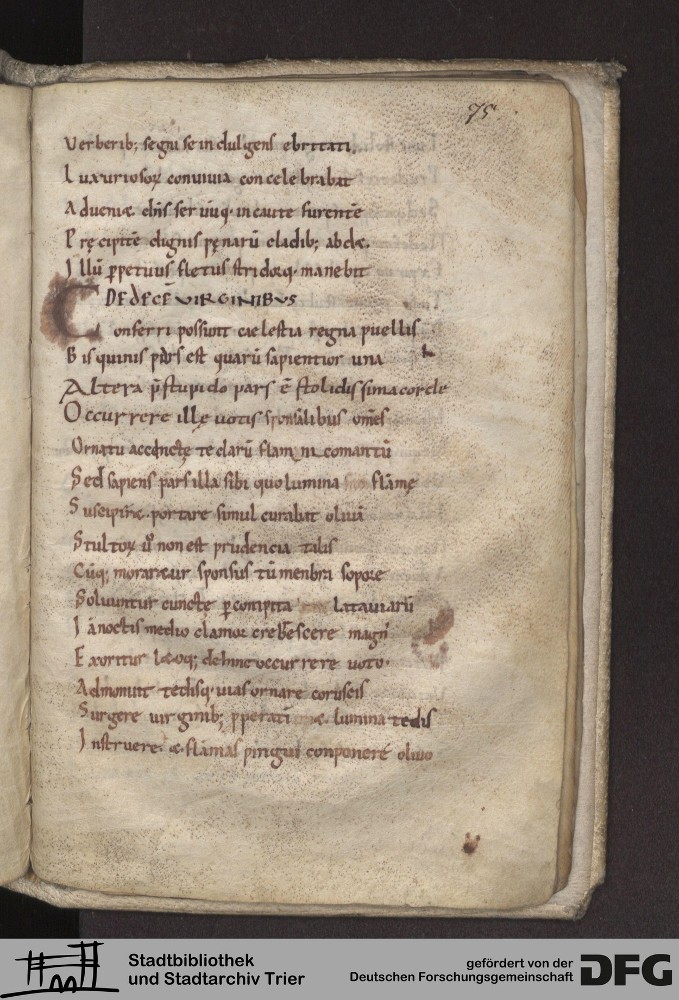 75
Verberib; segni se indulgens ebrietati.
Luxuriosoꝝ conuiuia concelebrabat
Adueniæ dn̄s seruūq· incaute furentē
Pręcipitē dignis pęnarū cladib; abdæ.
Illū ꝑpetuus fletus stridorq· manebit
DE DECĒ VIRGINIBVS
Conferri possunt caelestia regna puellis
Bis quinis pars est quarū sapientior una
Altera p̄stupido pars ē stolidissima corde
Occurrere illę uotis sponsalibus om̄s
Ornatu accinctę te clarū flammComantū
Sed sapiens pars illa sibi quo lumina flāmę
portare simul curabat oliuā
Stultoꝝ ů non est prudencia talis
Cūq; moraræur sponsus tū menbra sopore
Soluuntur cunctę
Iā noctis medio clamor crebescere magn'
Exoritur lætoq; dehinc occurrere uoto·
Admonuit tedisq· uias ornare coruscis
Surgere uirginib; ꝓperati æ lumina tedis
Instruere· æ flāmas pingui conponere oliuo
Stadtbibliothek
und Stadtarchiv Trier
gefördert von der
Deutschen Forschungsgemeinschaft
DFG